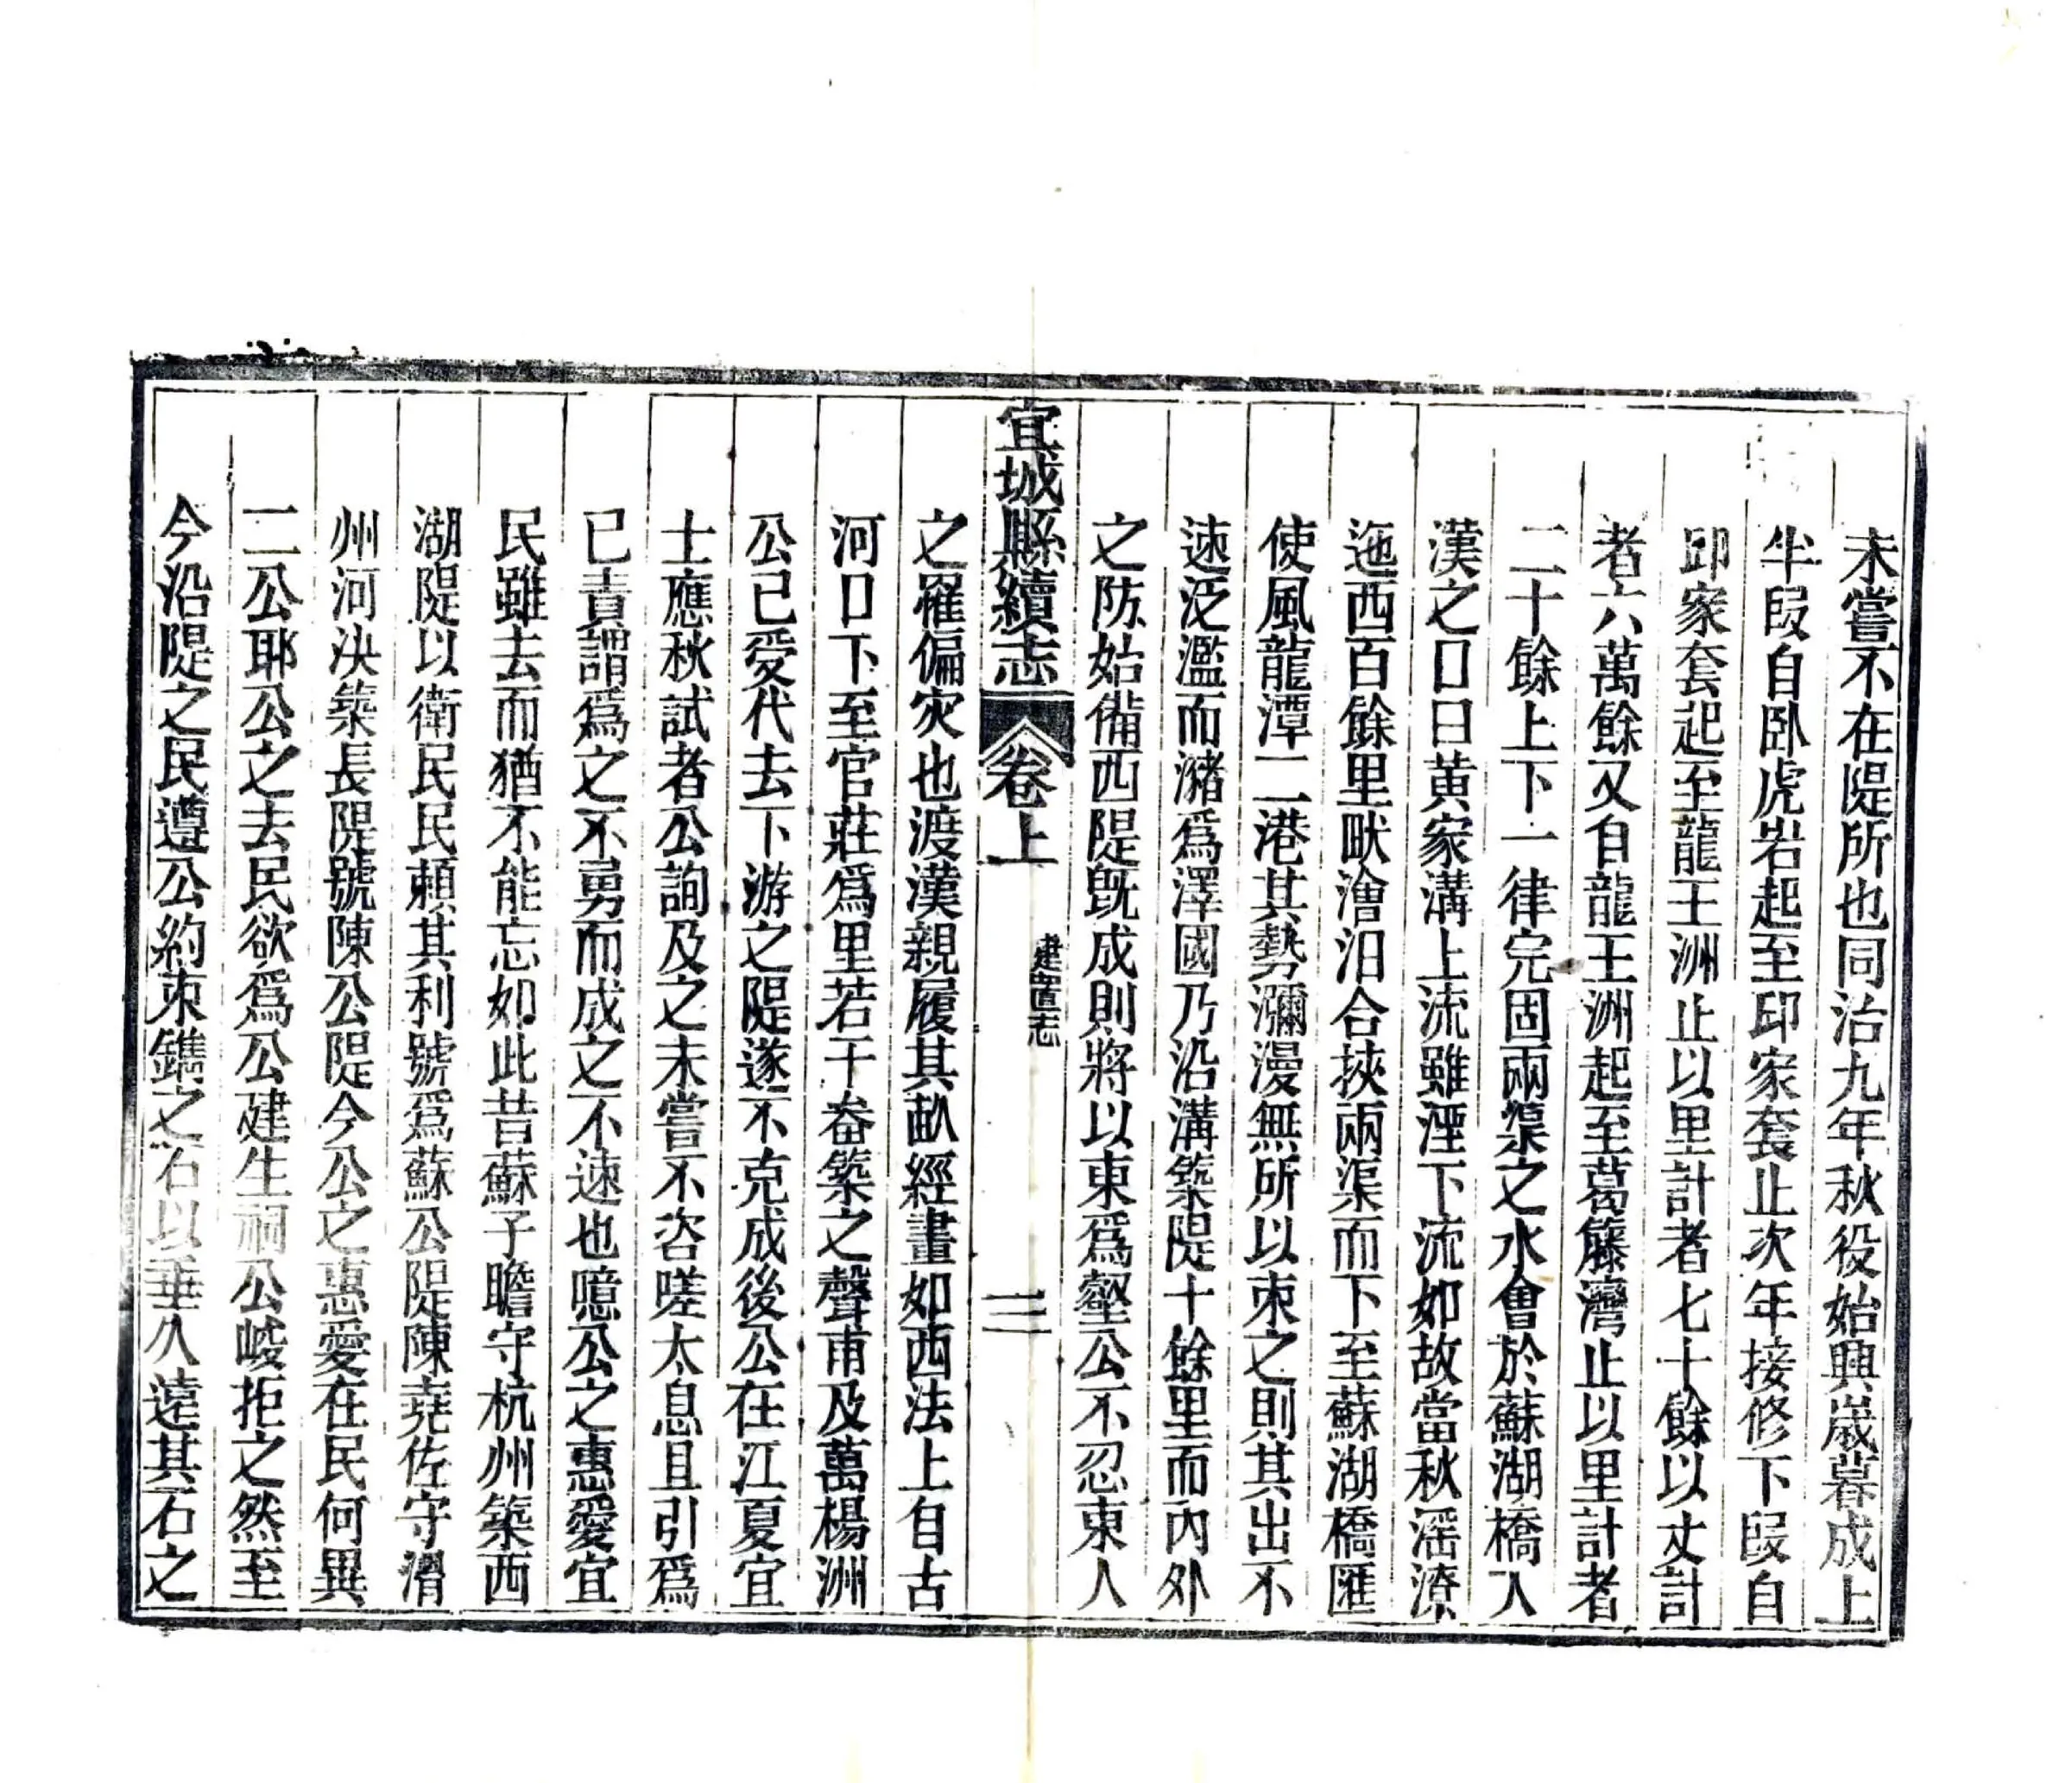 未嘗不在隄所也同治九年秋役始興歲暮成上
半段自卧虎岩起至印家套止次年接修下段自
印家套起至龍王洲止以里計者七十餘以丈計
者六萬餘又自龍王洲起至葛籐灣止以里計者
二十餘上下一律完固兩渠之水會於蘇湖橋入
漢之口曰黄家溝上流雖湮下流如故當秋滛潦
迤西百餘里畎澮汨合挾兩渠而下至蘇湖橋匯
使風龍潭二港其勢瀰漫無所以束之則其出不
速泛濫而瀦爲澤國乃沿溝築隄十餘里而內外
之防始備西隄旣成則將以東爲壑公不忍東人
宜城縣續志 卷上 建置志 三
之罹偏灾也渡漢親履其畝經畫如西法上自古
河口下至官莊爲里若干畚築之聲甫及萬楊洲
公已受代去下游之隄遂不克成後公在江夏宜
士應秋試者公詢及之未嘗不咨嗟太息且引爲
已責謂爲之不勇而成之不速也噫公之惠愛宜
民雖去而猶不能忘如此昔蘇子瞻守杭州築西
湖隄以衛民民賴其利號爲蘇公隄陳堯佐守滑
州河决築長隄號陳公隄今公之惠愛在民何異
二公耶公之去民欲爲公建生祠公峻拒之然至
今沿隄之民遵公約束鐫之石以垂久遠其石之